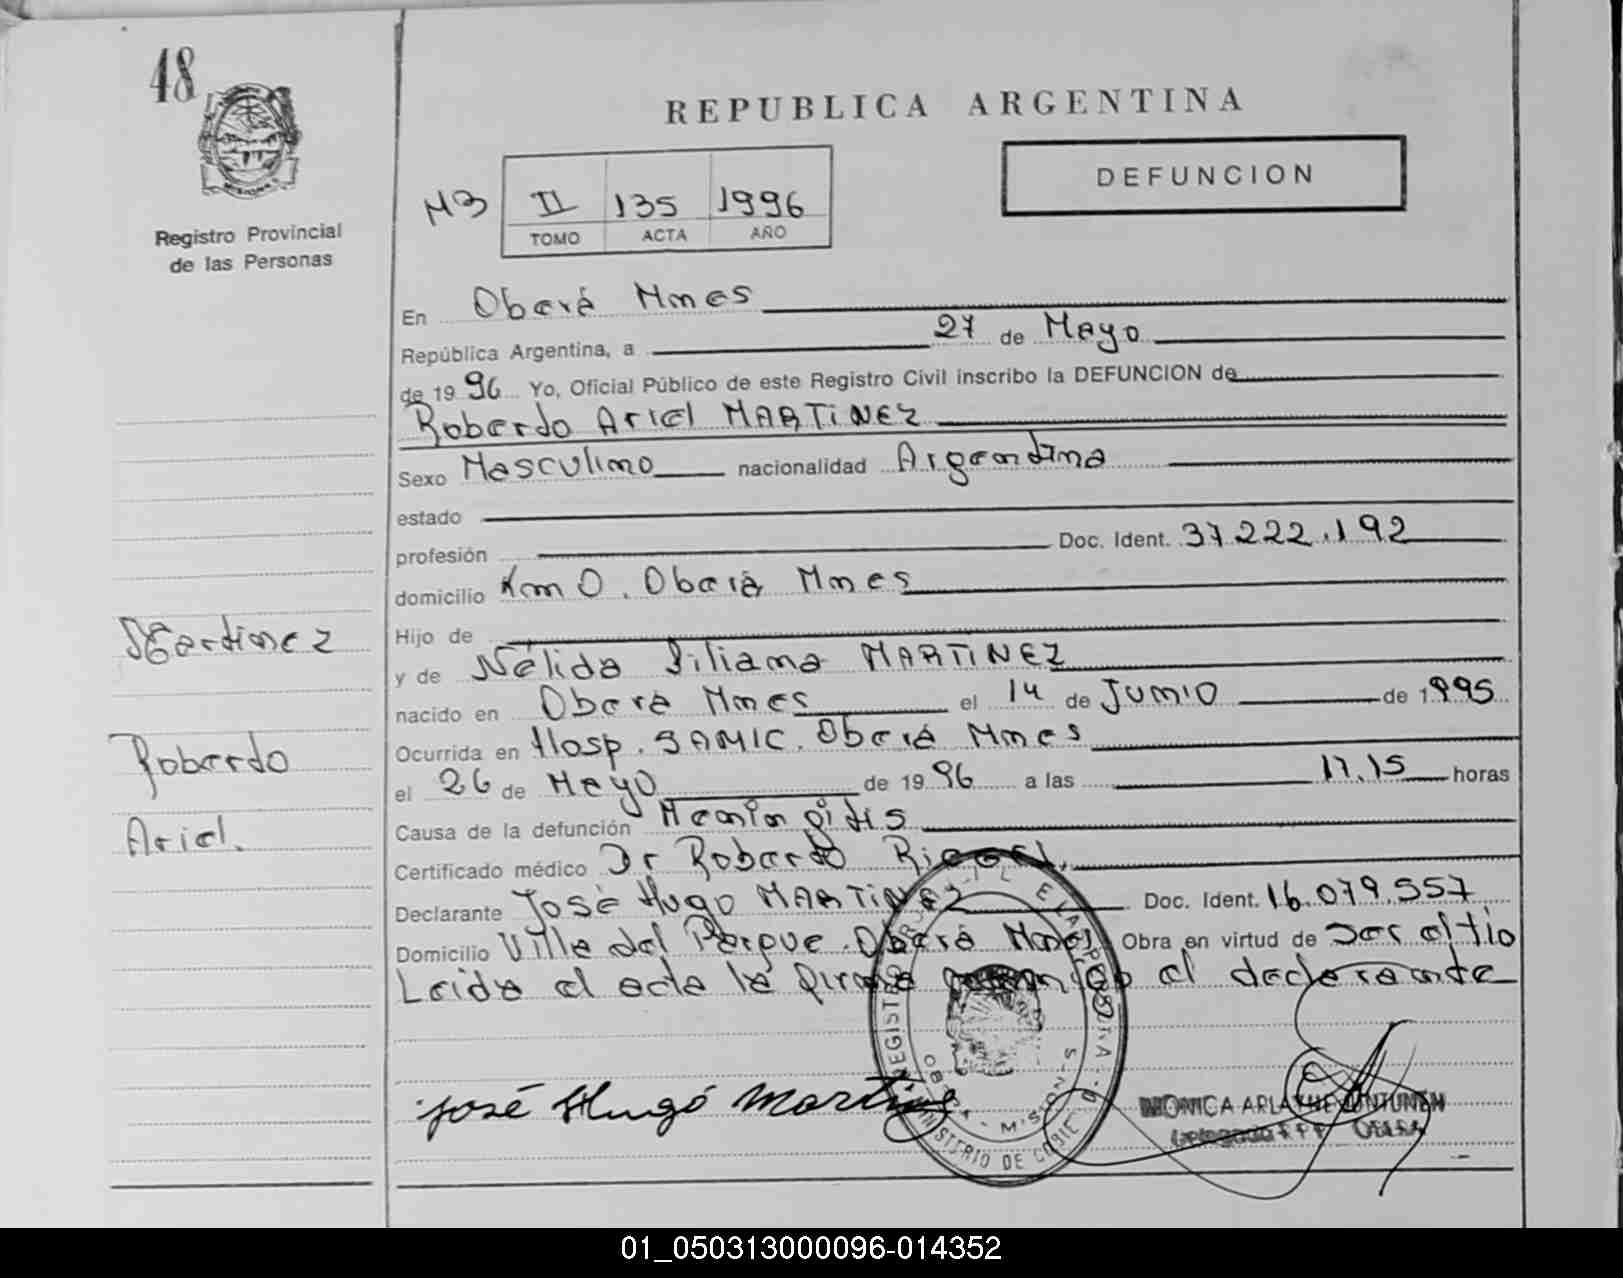 48
REPUBLICA ARGENTINA
DEFUNCION
MISIONES
Registro Provincial
de las Personas
M3 II 135 1996
TOMO ACTA AÑO
En Oberá Mnes
República Argentina, a 27 de Mayo
de 1996 Yo, Oficial Público de este Registro Civil inscribo la DEFUNCION de
Roberto Ariel MARTINEZ
Sexo Masculino nacionalidad Argentina
estado
profesión Doc. Ident. 37.222.192
domicilio Km 0. Oberá Mnes
Hijo de
y de Nélida Liliana MARTINEZ
nacido en Oberá Mnes el 14 de Junio de 1995
Ocurrida en Hosp. SAMIC. Oberá Mnes
el 26 de Mayo de 1996 a las 17.15 horas
Causa de la defunción Meningitis
Certificado médico Dr Roberto
Declarante José Hugo MARTINEZ Doc. Ident. 16.079.557
Domicilio Villa del Parque. Oberá Mnes Obra en virtud de ser el tío
Leída el acta la firma el declarante
Martinez
Roberto
Ariel.
José Hugó Martinez
REGISTRO
OBERA - MISIONES
MINISTERIO DE GOBIE
MONICA
01_050313000096-014352